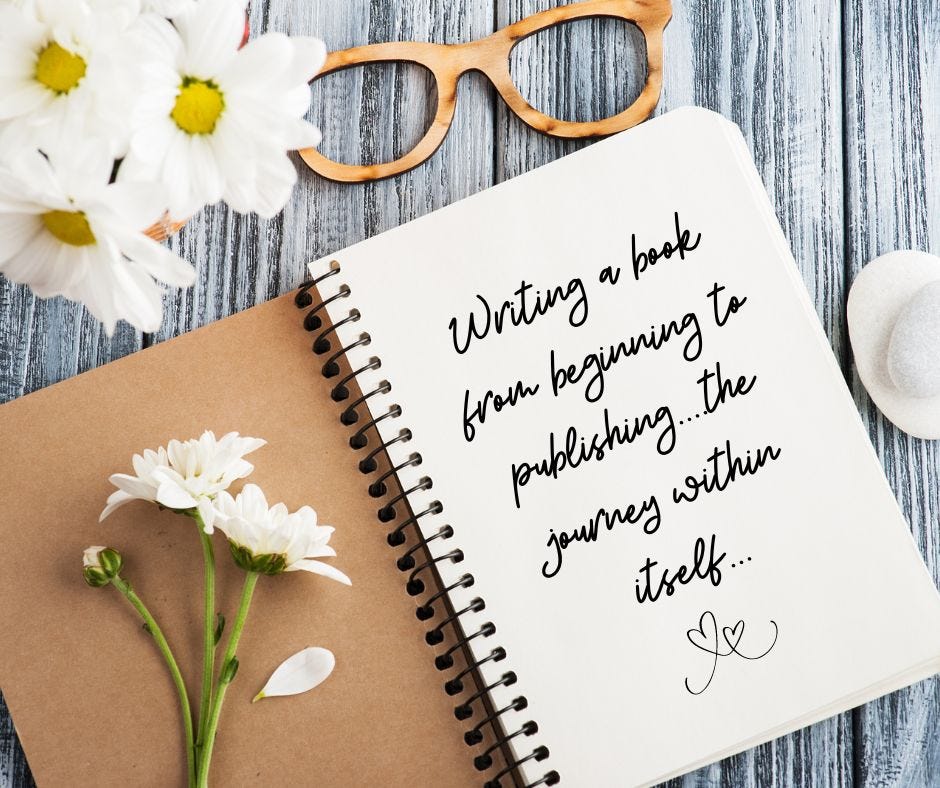 Writing a book
from beginning to
publishing....the
journey within
itself...